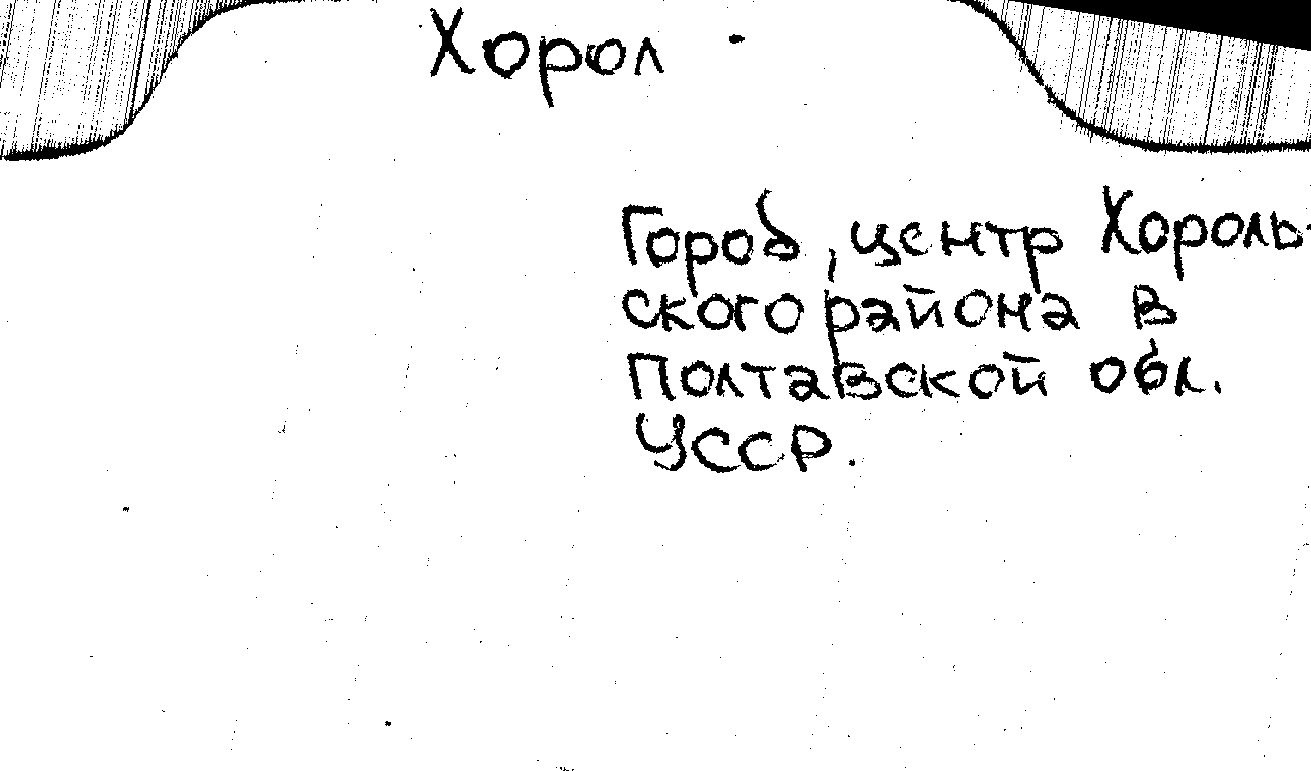 Хорол -
Город, центр Хороль-
ского района в
Полтавской обл.
УССР.